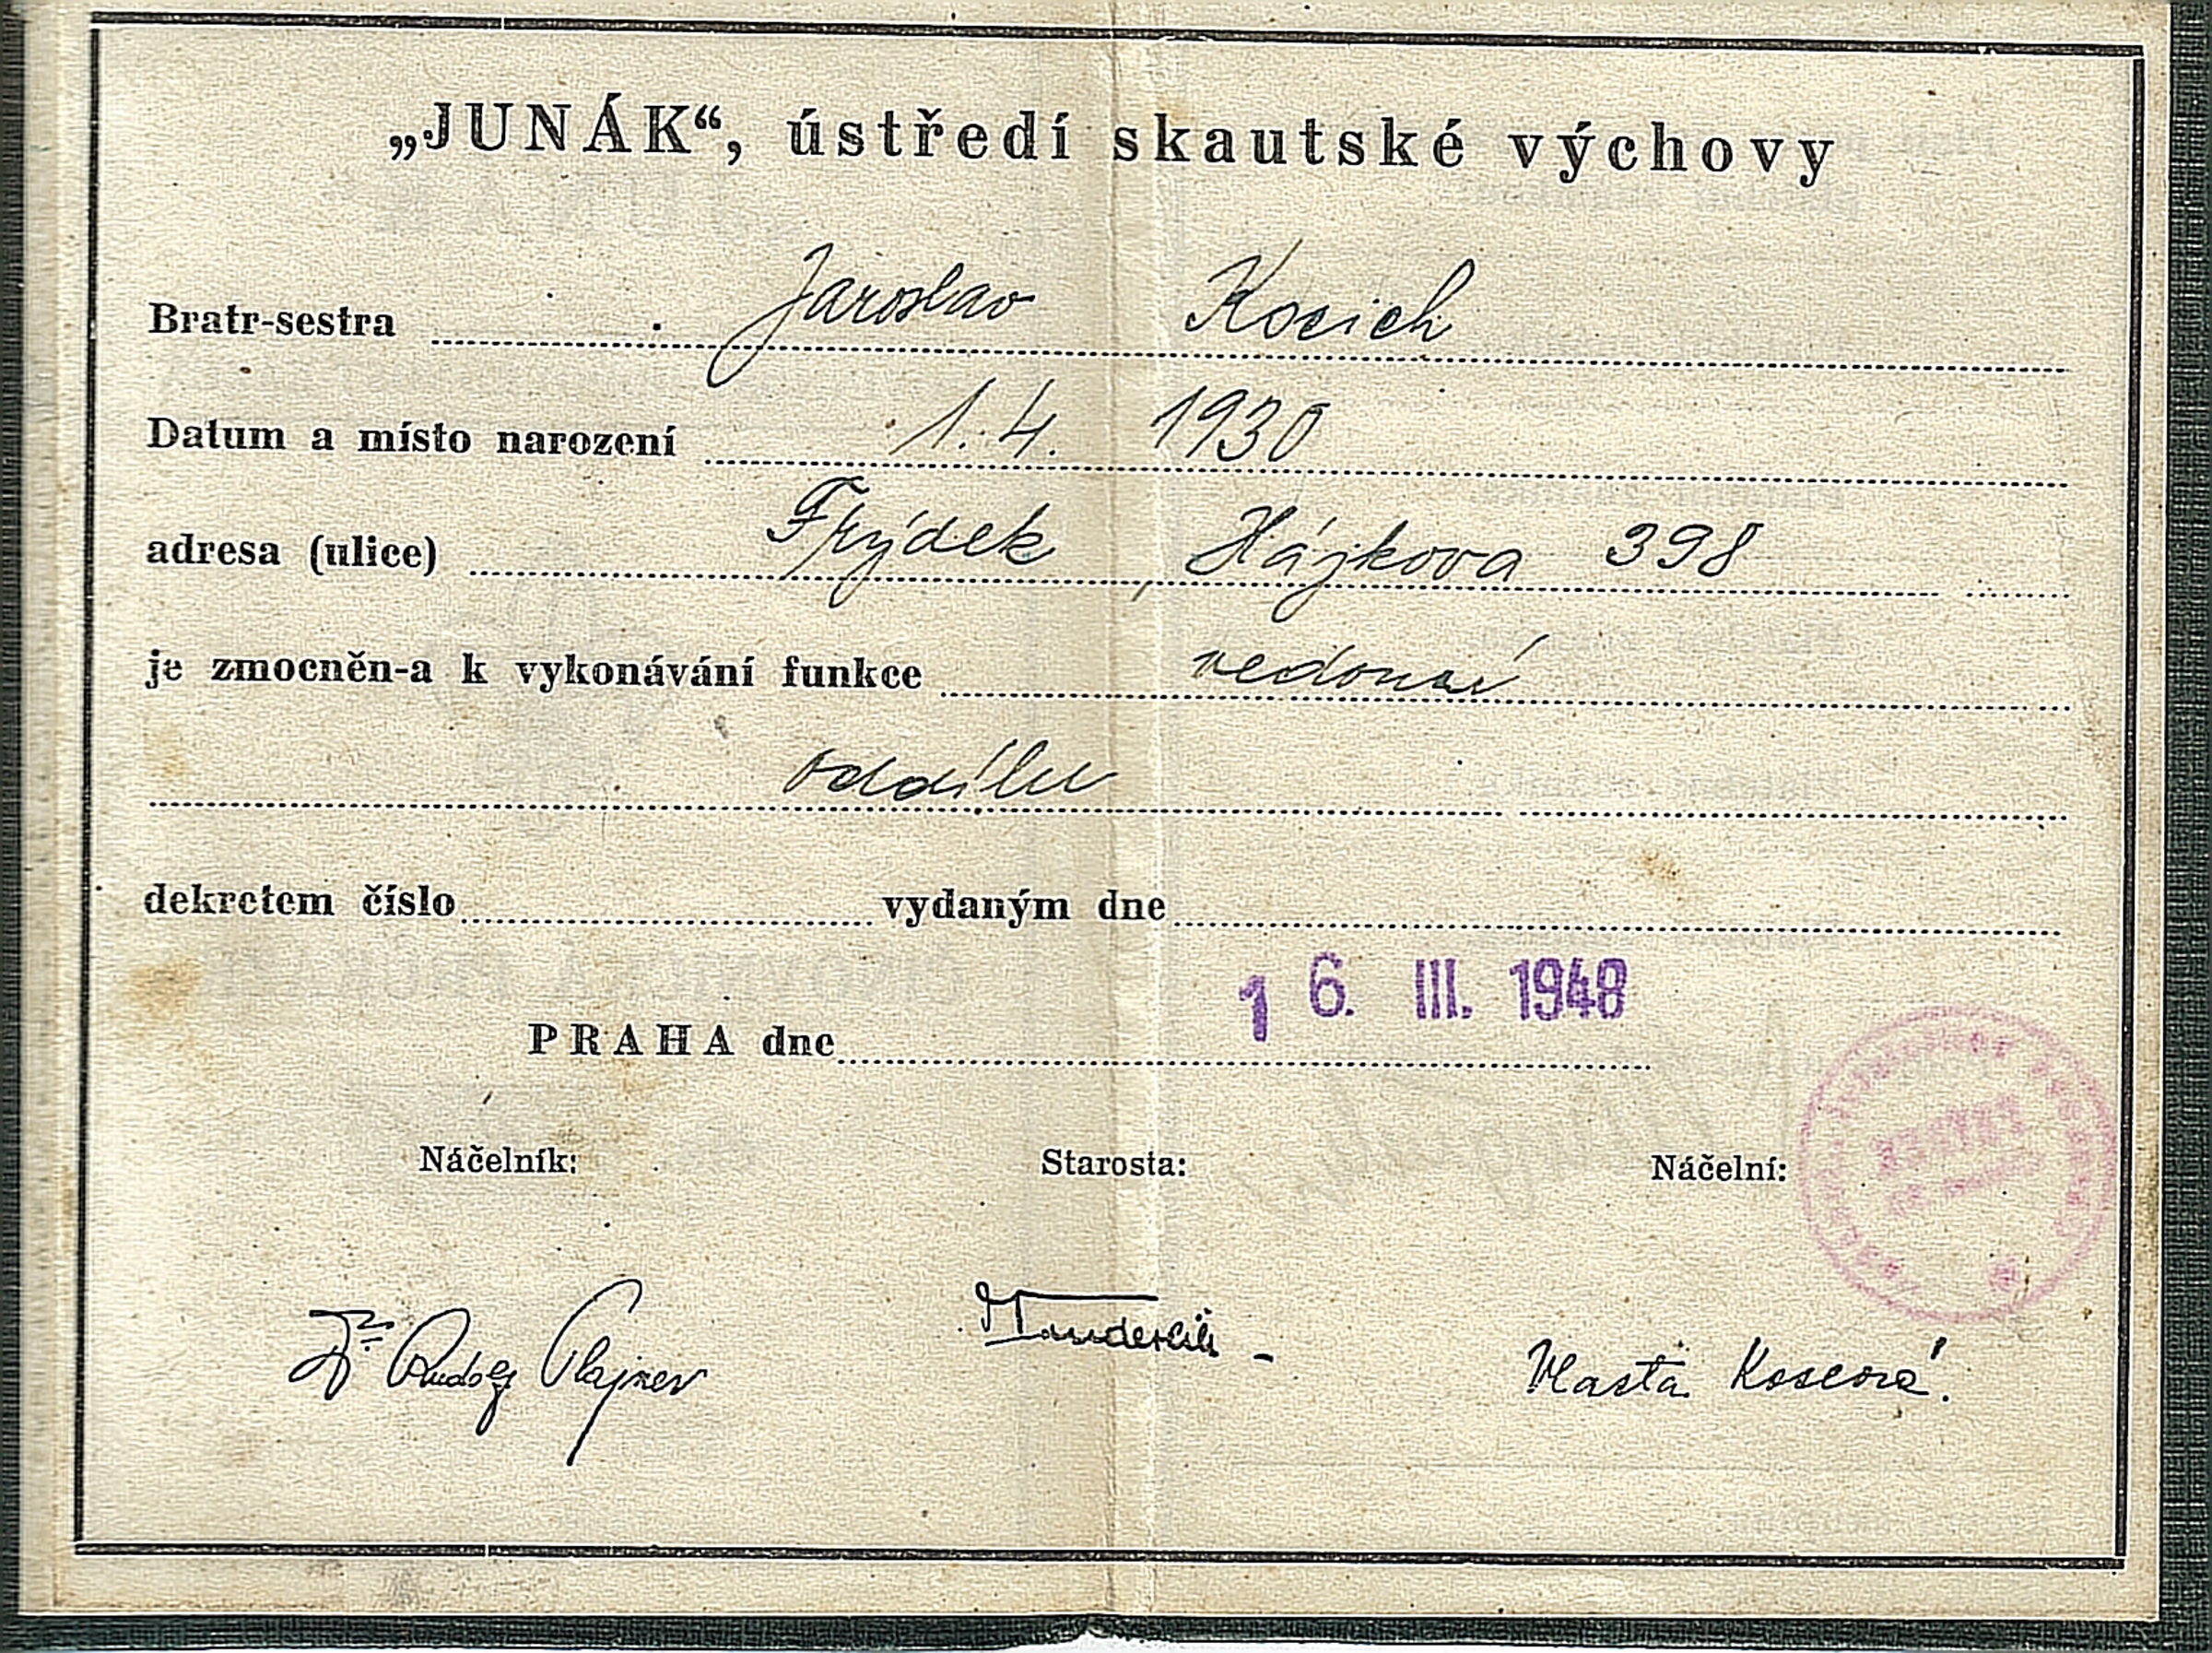 „JUNÁK“, ústředí skautské výchovy
Bratr-sestra Jaroslav Kocich
Datum a místo narození 1. 4. 1930
adresa (ulice) Frýdek, Hájkova 398
je zmocněn-a k vykonávání funkce vedoucí
oddílu
dekretem číslo vydaným dne
16. III. 1948
PRAHA dne
Náčelník: Starosta: Náčelní:
Dr Rudolf Plajner Vlasta Koseová.